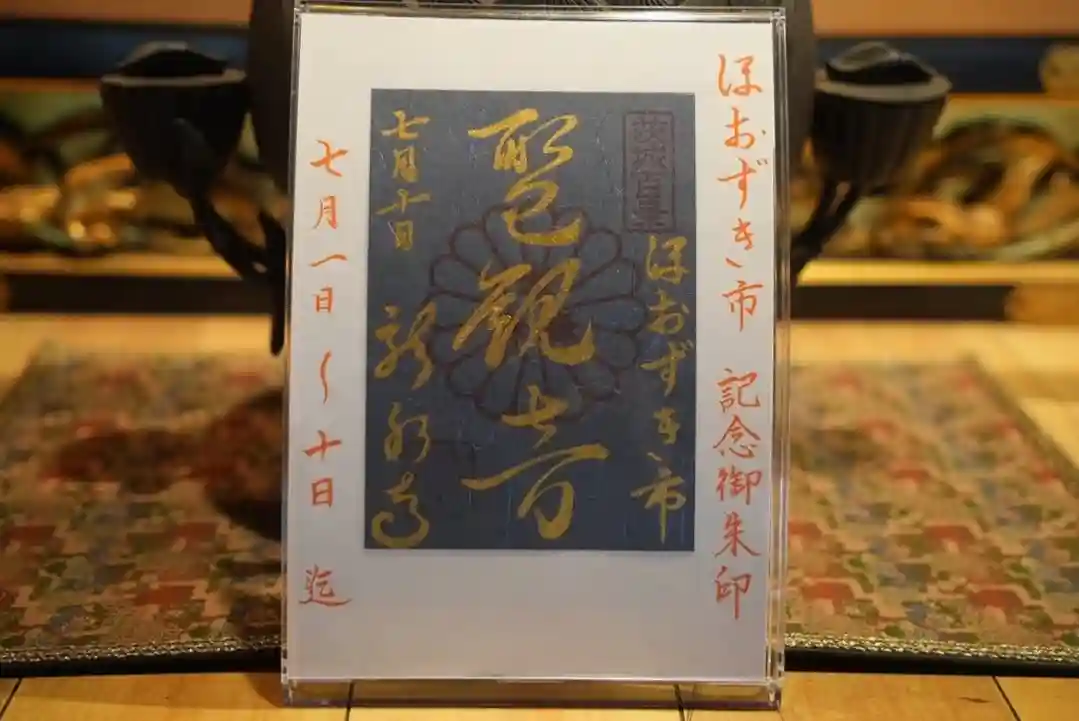 ほおずき市 記念御朱印
茨城百景
ほおずき市
聖観音
七月十日
七月一日〜十日迄